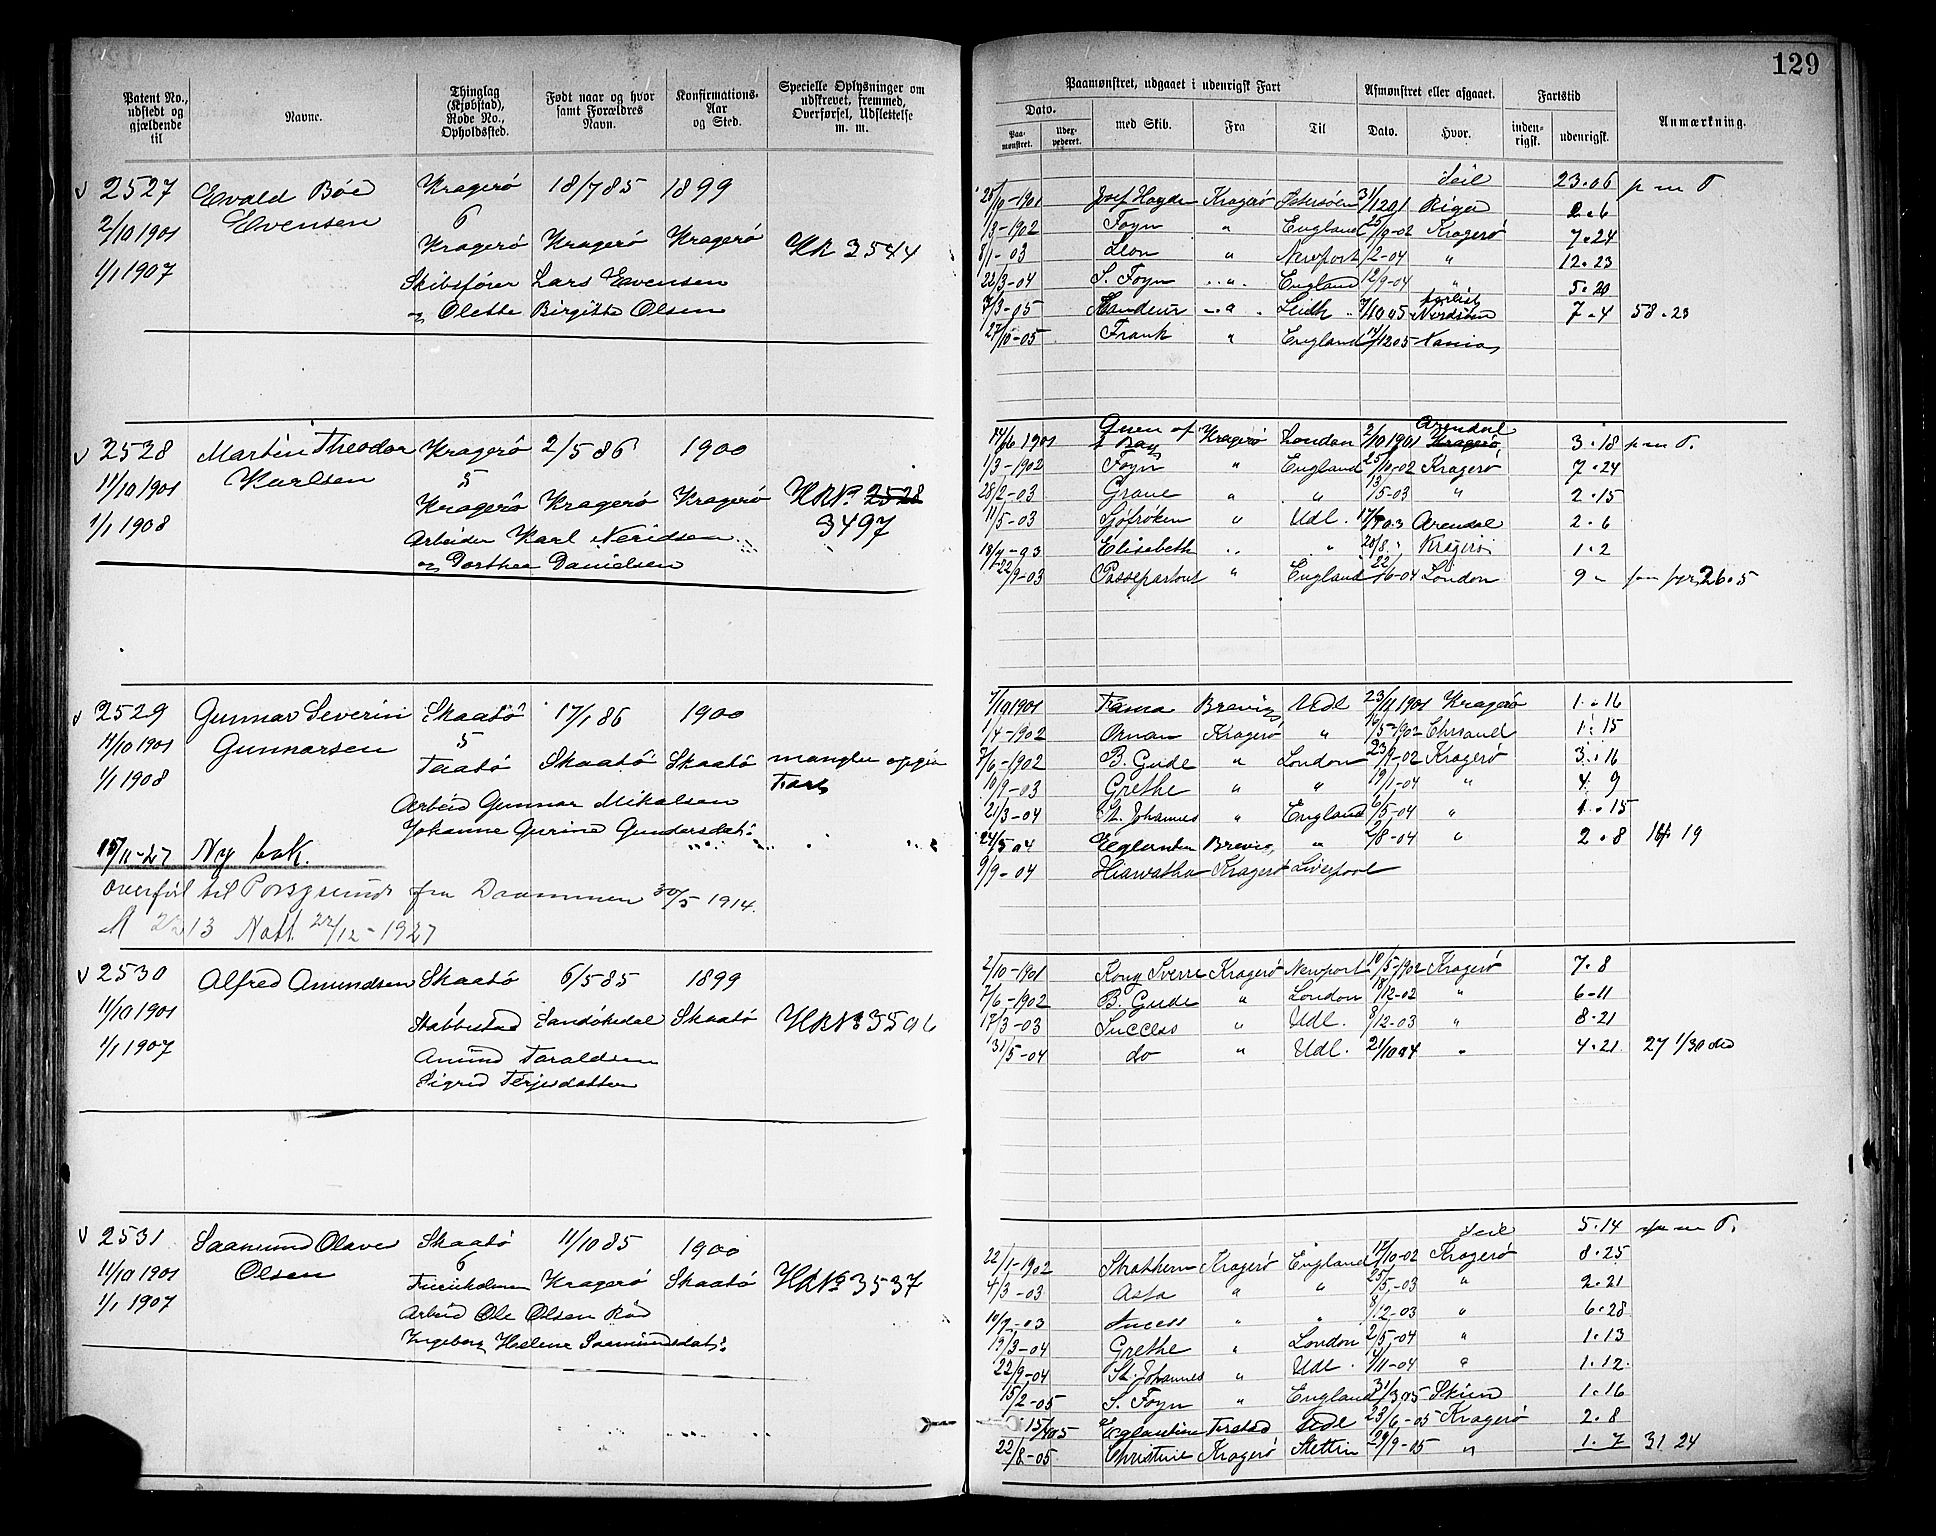 129
Patent No., udstedt og gjældende til
Navne.
Thinglag (Kjøbstad), Rode No., Opholdssted.
Født naar og hvor samt Forældres Navn.
Konfirmations- Aar og Sted.
Specielle Oplysninger om udskrevet, fremmed, Overførsel, Udslettelse m. m.
Paamønstret, udgaaet i udenrigsk Fart
Dato.
Paa- mønstret.
Udex- pederet.
med Skib.
Fra
Til
Afmønstret eller afgaaet.
Dato.
Hvor.
Fartstid
inden- rigsk.
udenrigsk.
Anmærkning.
2527 Evald Boie Kragerö 18/7 85 1899
2/10 1901 Evensen 6
Kragerö Kragerö Kragerö HR 3544
1/1 1907 Skibsförer Lars Evensen
og Olette Birgitte Olsen
Seil 23.06
Kragerö 3/1 1201 Riga 2.6
1/3-1902 Foyn " England 25/9-02 Kragerö 7.24
8/1-03 " Newport /2-04 " 12.23
22/3-04 S. Foyn " England 12/9-04 " 5.20
7/3-05 " Leith 7/10 05 7.4 58.23
27/10-05 Frank " England 14/12 05
2528 Martin Theodor Kragerö 2/5 86 1900
11/10 1901 Karlsen 5
Kragerö Kragerö Kragerö HRNo 2528
1/1 1908 3497
Arbeider Karl Neridsen
og Dorthea Danielsen
14/6 1901 Queen of f Bay Kragerö London 2/10 1901 Arendal Kragerö 3.18
1/3-1902 Foyn " England 25/10-02 Kragerö 7.24
28/2-03 Grane " " 13/5-03 " 2.15
11/5-03 Sjöfröken " Udl. 17/7 03 Arendal 2.6
18/7-03 Elisabeth " " 20/8 " Kragerö 1.2
22/9-03 Passepartout " England 22/6-04 London 9 " 26.5
2529 Gunnar Severin Skaatö 17/1 86 1900
11/10 1901 Gunnarsen 5
1/1 1908 Taatö Skaatö Skaatö mangler opgiv Fart
Arbeid Gunnar Mikalsen
Johanne Gurine Gundersdat:
15/11-27 Ny bok.
overförl til Porsgrund fra Drammen 30/5 1914.
A 2213 Nott. 22/12-1927
7/10 1901 Fama Brevig Udl 23/11 1901 Kragerö 1.16
1/4-1902 Ornan Kragerö " 16/5-1902 Chrsand 1.15
7/6-1902 B. Gude " London 23/9-02 Kragerö 3.16
10/9-03 Grethe " " 19/1-04 " 4 9
21/3-04 St. Johannes " England 6/5-04 " 1.15
24/5 04 Eglantin Brevig " 2/8-04 " 2.8 19
9/9-04 Hiawatha Kragerö Liverpool
2530 Alfred Amundsen Skaatö 6/5 85 1899
11/10 1901 Stabbestad Sandökedal Skaatö HRNo 3506
1/1 1907 Amund Taraldsen
Sigrid Terjesdatter
2/10-1901 Kong Sverre Kragerö Newport 10/5-1902 Kragerö 7.8
7/6-1902 B. Gude " London 18/12-02 " 6-11
17/3-03 Success " Udl. 8/12-03 " 8-21
31/5-04 do " Udl. 21/10 04 " 4.21 27 1/30
2531 Saamund Olaves Skaatö 11/10 85 1900
11/10 1901 Olsen 6
Kragerö Skaatö HRNo 3537
1/1 1907 Arbeid Ole Olsen Röd
Ingeborg Helene Saamundsdat:
Seil 5.14
22/1-1902 Strathern Kragerö England 17/10-02 Kragerö 8-25
4/3-03 Asta " " 25/5-03 " 2.21
10/9-03 Sucess " " 8/12-03 " 6.28
19/3-04 Grethe " London 2/5-04 " 1.13
22/9-04 St. Johannes " Udl. 7/11-04 " 1.12.
15/2-05 S. Foyn " England 31/3 05 Skien 1.16
15/4 05 Eglantine Udl 23/6-05 Kragerö 2.8
22/8-05 Christine Kragerö Stettin 29/9-05 " 1.7 31 24